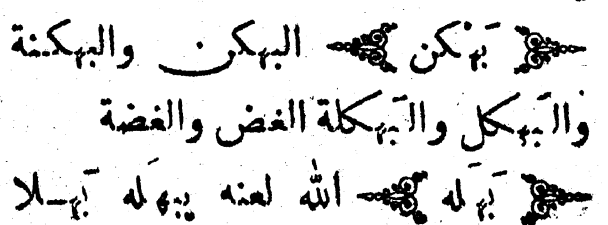 بَهْكن البهكن والبهكنة
والَبهكل والَبهكلة الغض والغضة
بَهَله الله لعنه يبهَله بَهلا